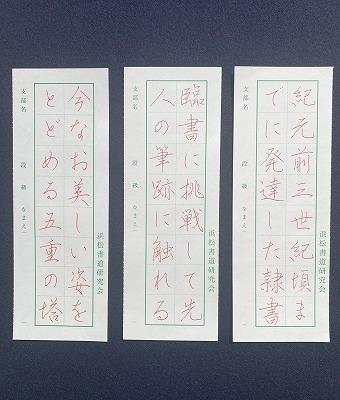 浜松書道研究会
紀元前三世紀頃ま
でに発達した隷書
支部名 段 級 なまえ
浜松書道研究会
臨書に挑戦して先
人の筆跡に触れる
支部名 段 級 なまえ
浜松書道研究会
今なお美しい姿を
とどめる五重の塔
支部名 段 級 なまえ